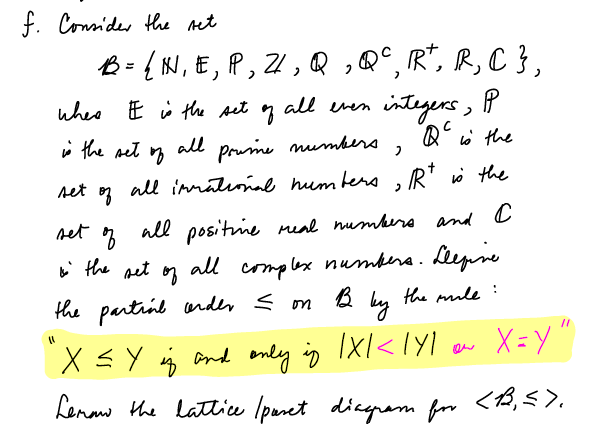 f. Consider the set
𝔹 = { ℕ, 𝔼, ℙ, ℤ, ℚ, ℚᶜ, ℝ⁺, ℝ, ℂ },
where 𝔼 is the set of all even integers, ℙ
is the set of all prime numbers, ℚᶜ is the
set of all irrational numbers, ℝ⁺ is the
set of all positive real numbers and ℂ
is the set of all complex numbers. Define
the partial order ≤ on 𝔹 by the rule :
"X ≤ Y if and only if |X| < |Y| or X = Y"
the lattice / poset diagram for <𝔹, ≤>.